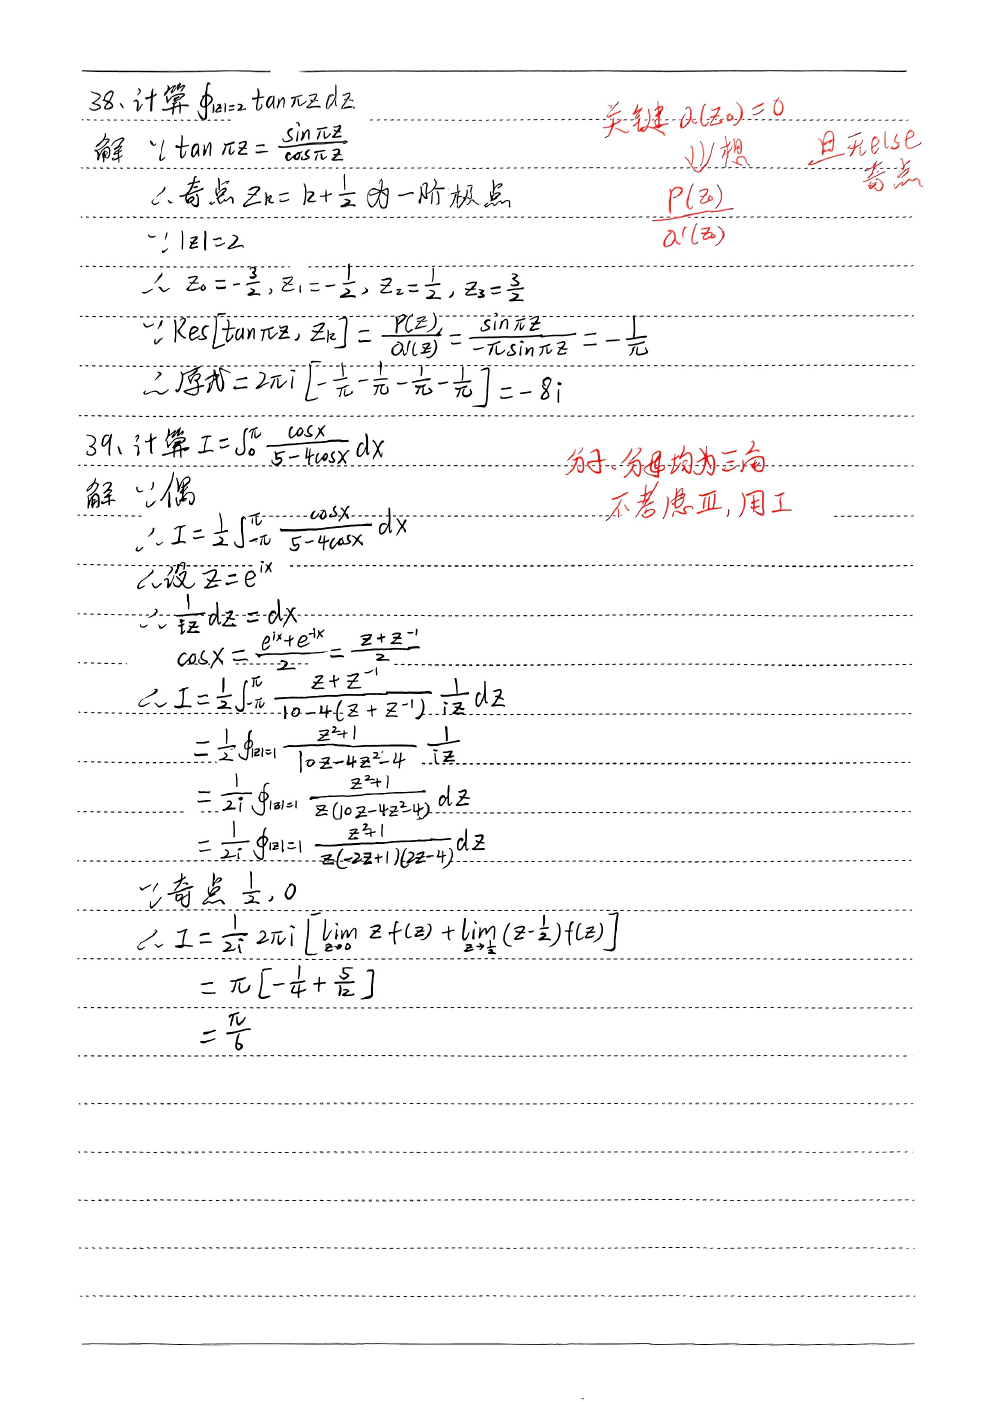 38、计算 ∮|z|=2 tanπz dz
解 ∵ tanπz = sinπz / cosπz
∴ 奇点 Zk = k + 1/2 为一阶极点
∵ |z| = 2
∴ Z0 = -3/2, Z1 = -1/2, Z2 = 1/2, Z3 = 3/2
∵ Res[tanπz, Zk] = P(z)/Q'(z) = sinπz / -πsinπz = -1/π
∴ 原式 = 2πi [-1/π - 1/π - 1/π - 1/π] = -8i
关键 Q(z0) = 0
⇓ 想
P(z0) / Q'(z0)
且无else
奇点
39、计算 I = ∫0^π cosx / (5-4cosx) dx
解 ∵ 偶
∴ I = 1/2 ∫-π^π cosx / (5-4cosx) dx
∴ 设 z = e^ix
∴ 1/(iz) dz = dx
cosx = (e^ix + e^-ix)/2 = (z + z^-1)/2
∴ I = 1/2 ∫-π^π (z + z^-1) / (10 - 4(z + z^-1)) 1/(iz) dz
= 1/2 ∮|z|=1 (z²+1) / (10z - 4z² - 4) 1/(iz)
= 1/(2i) ∮|z|=1 (z²+1) / (z(10z - 4z² - 4)) dz
= 1/(2i) ∮|z|=1 (z²+1) / (z(-2z+1)(2z-4)) dz
∵ 奇点 1/2, 0
∴ I = 1/(2i) 2πi [lim z→0 z f(z) + lim z→1/2 (z - 1/2) f(z)]
= π [-1/4 + 5/12]
= π/6
分子、分母均为三角
不考虑Ⅲ, 用Ⅰ